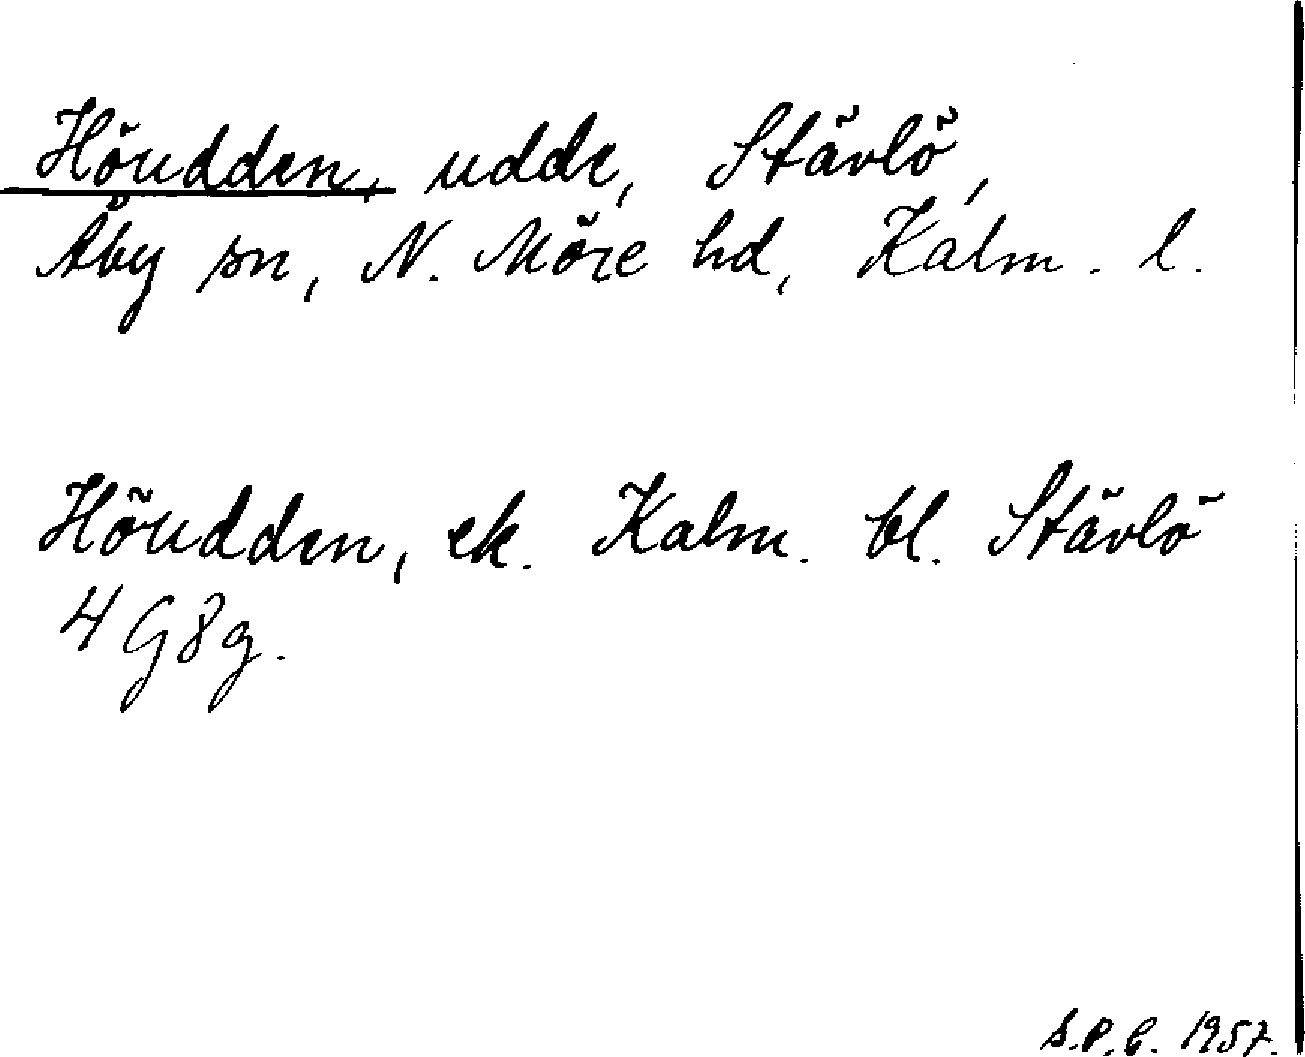 Höudden, udde, Stävlö,
Åby sn, N. Möre hd, Kalm. l.
Höudden, ek. Kalm. bl. Stävlö
4 G 8 g.
S.P.B. 1957.